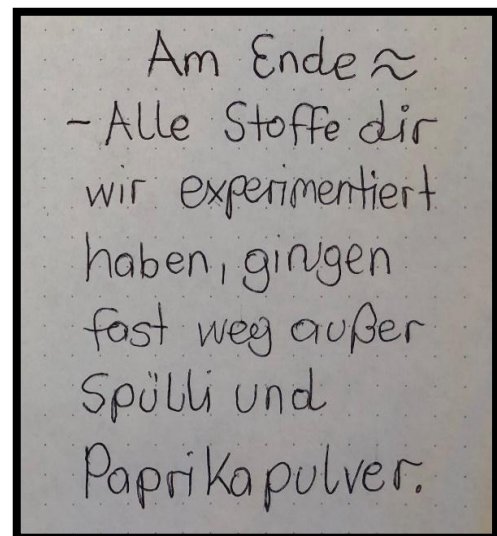 Am Ende ≈
- Alle Stoffe dir
wir experimentiert
haben, gingen
fast weg außer
Spülli und
Paprikapulver.